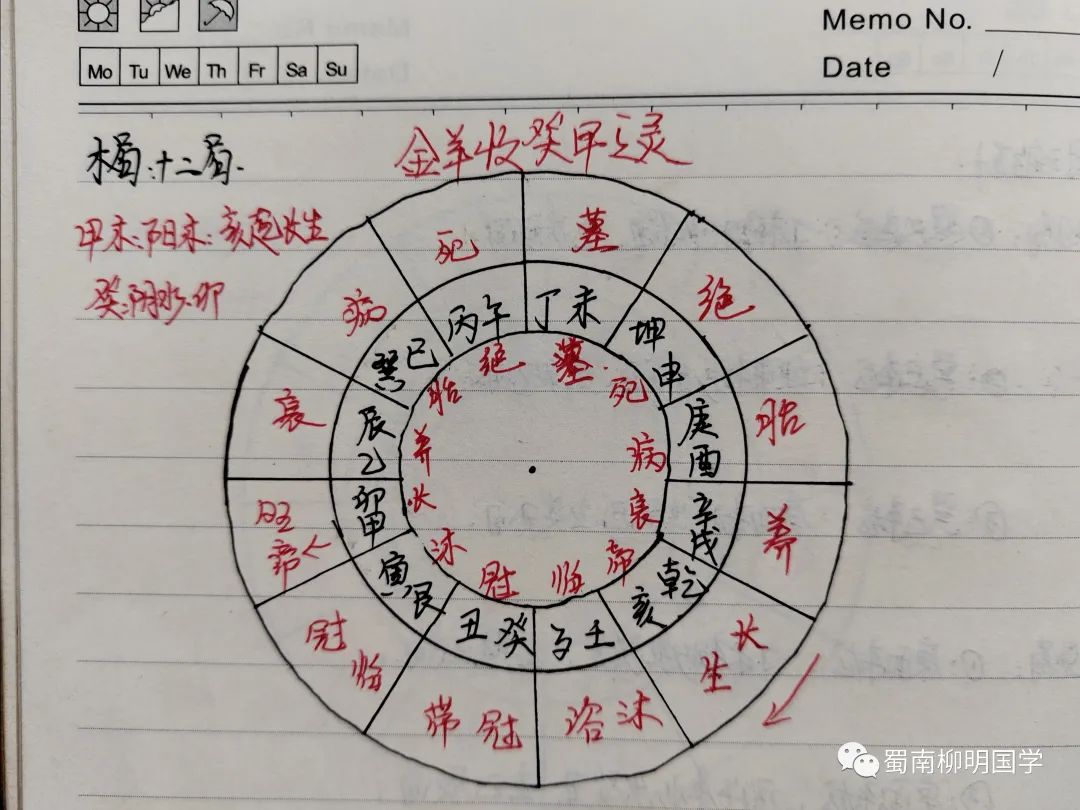 Memo No.
Date /
Mo Tu We Th Fr Sa Su
金羊收癸甲之灵
木局:十二局.
甲木:阳木:亥起长生
癸:阴水:卯
墓
绝
胎
养
长生
沐浴
冠带
临冠
帝旺
衰
病
死
丁未
坤申
庚酉
辛戌
乾亥
壬子
癸丑
艮寅
甲卯
乙辰
巽巳
丙午
墓
死
病
衰
帝
临
冠
沐
长
养
胎
绝
蜀南柳明国学